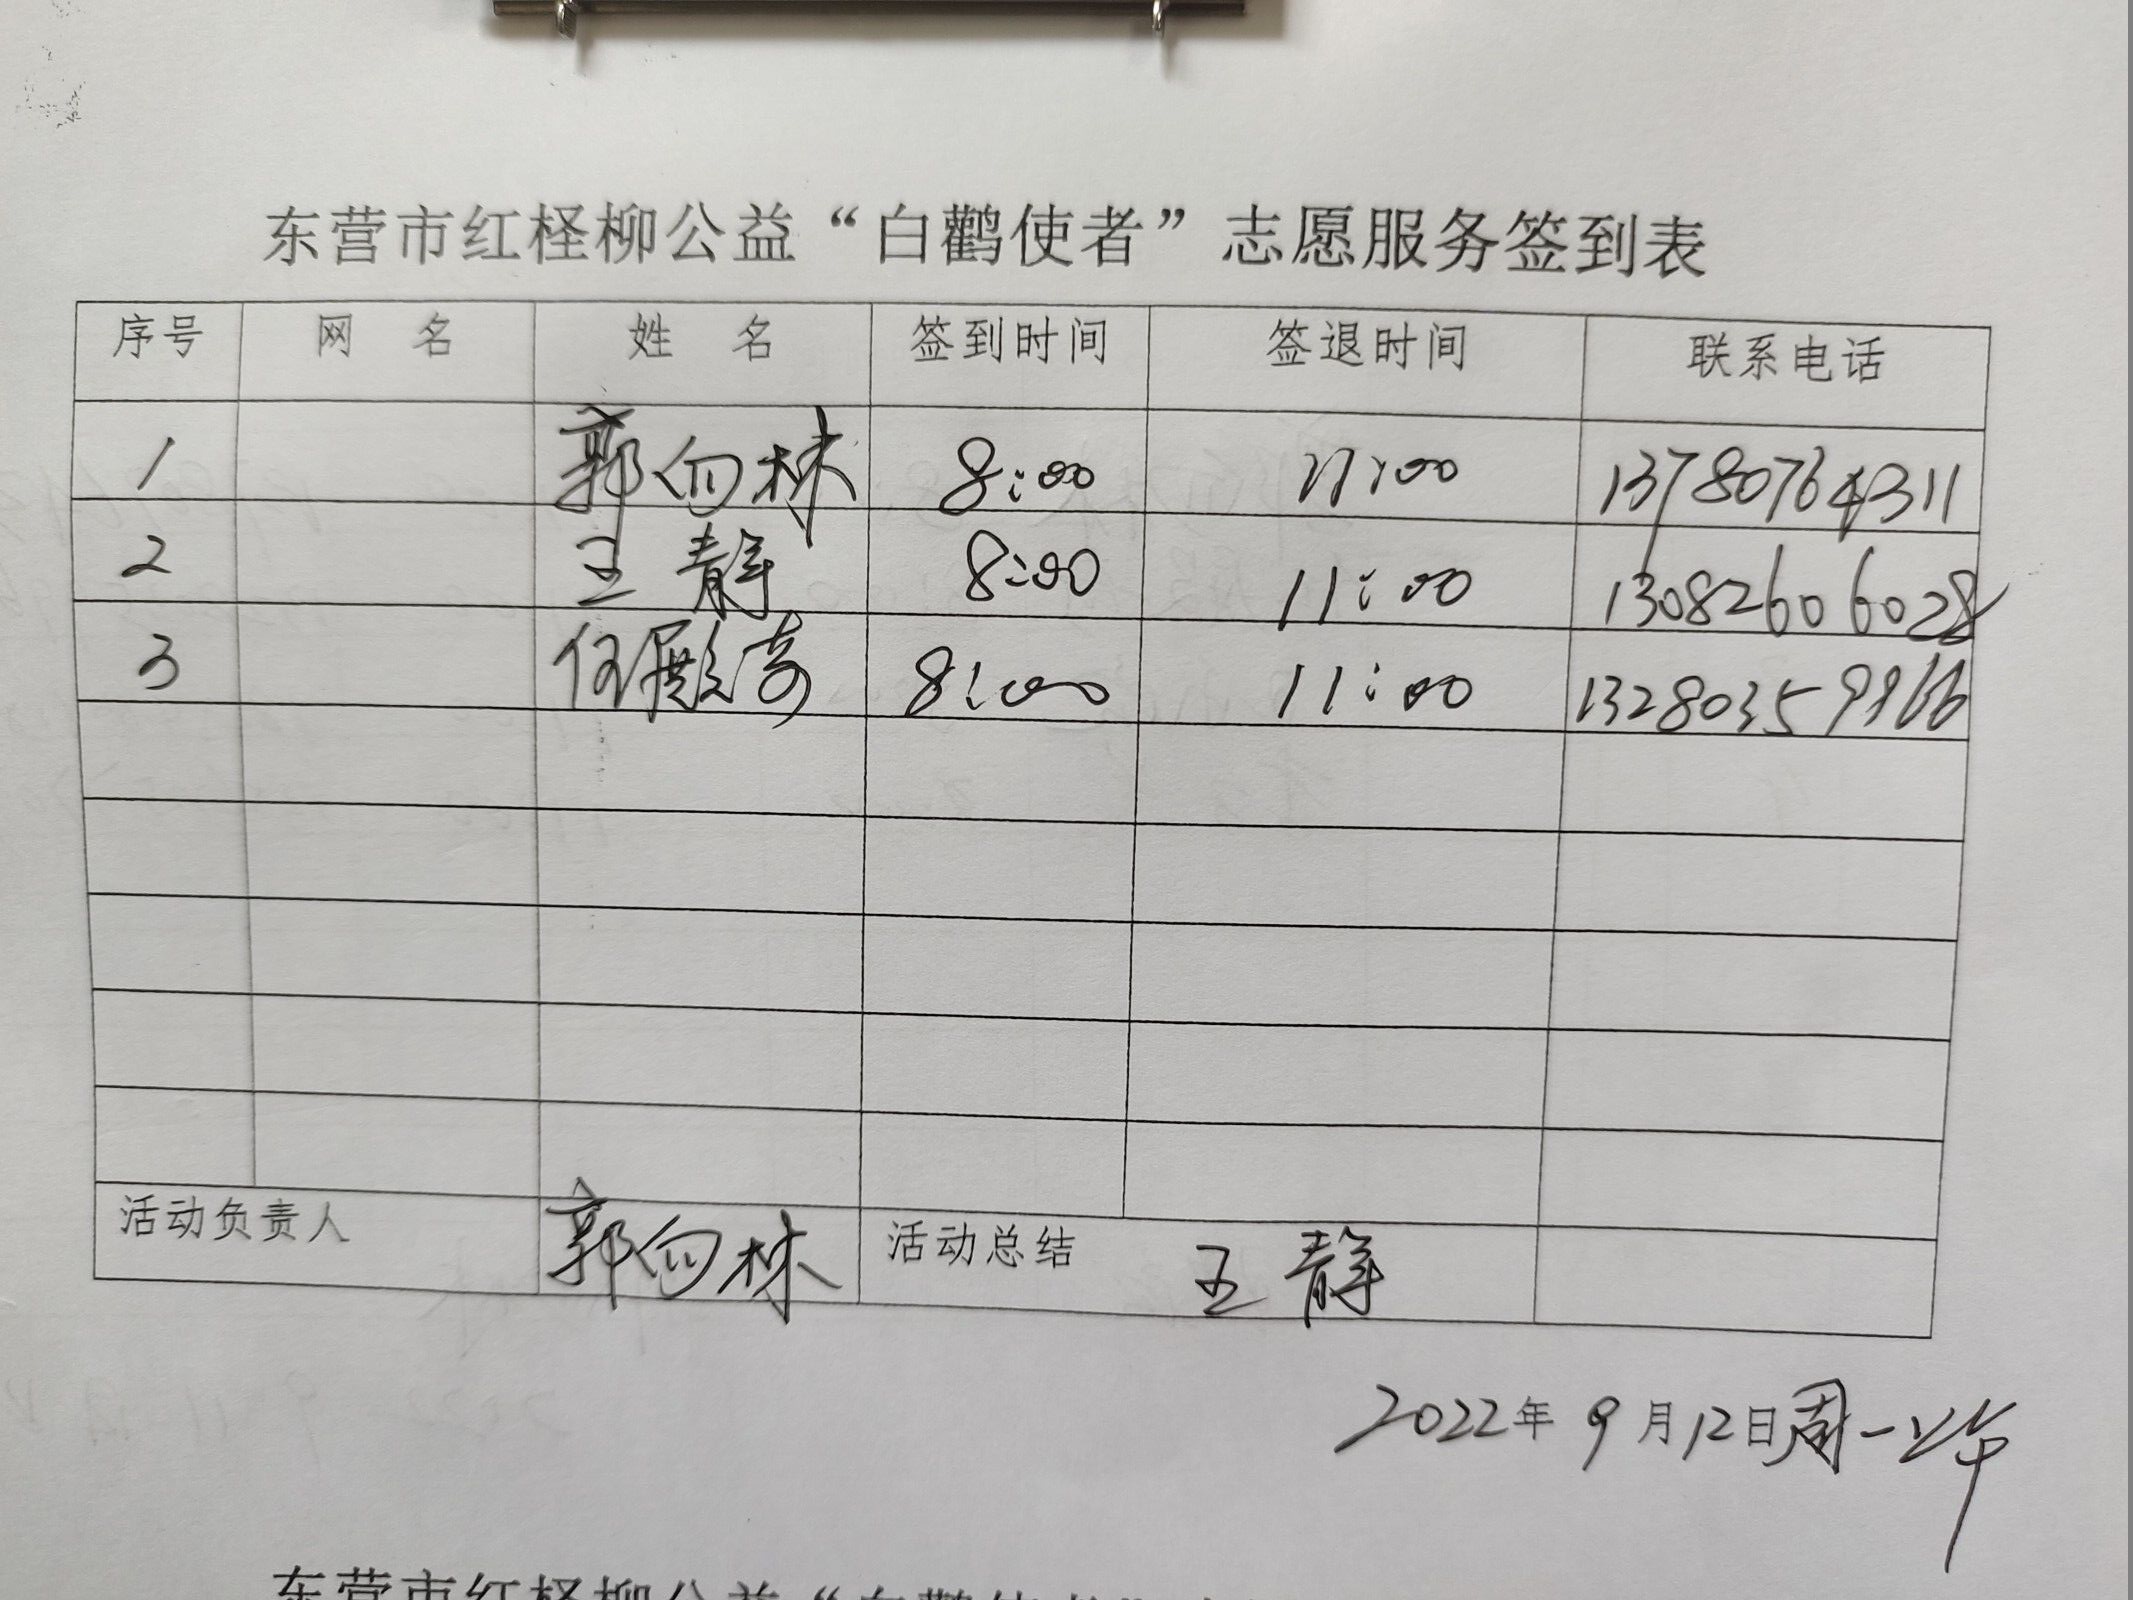 东营市红柽柳公益“白鹳使者”志愿服务签到表
序号 网 名 姓 名 签到时间 签退时间 联系电话
1 郭向林 8:00 11:00 13780764311
2 王静 8:00 11:00 13082606028
3 任殿奇 8:00 11:00 13280359966
活动负责人 郭向林 活动总结 王静
2022年9月12日周一上午
东营市红柽柳公益“白鹳使者”